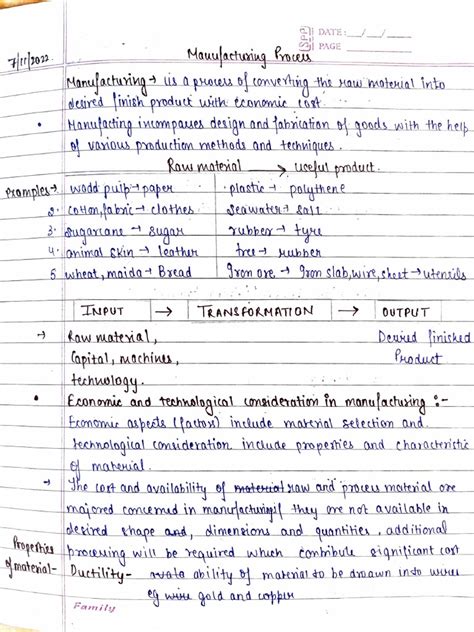 DATE: __/__/__
PAGE
7/11/2022
Manufacturing Process
Manufacturing → is a process of converting the raw material into
desired finish product with economic cost.
• Manufacting incompasses design and fabrication of goods with the help
of various production methods and techniques.
Raw material → useful product.
Examples → wood pulp → paper plastic → polythene
2. cotton, fabric → clothes seawater → salt
3. sugarcane → sugar rubber → tyre
4. animal skin → leather tree → rubber
5 wheat, maida → Bread Iron ore → Iron slab, wire, sheet → utensils
INPUT → TRANSFORMATION → OUTPUT
→ Raw material, Desired finished
Capital, machines, Product
technology.
• Economic and technological consideration in manufacturing :-
Economic aspects (factors) include material selection and
technological consideration include properties and characteristic
of material.
→ The cost and availability of material raw and process material are
majored concerned in manufacturing if they are not available in
desired shape and, dimensions and quantities, additional
processing will be required which contribule significant cost
Properties
of material - Ductility - ability of material to be drawn into wires
eg wire gold and copper
Family